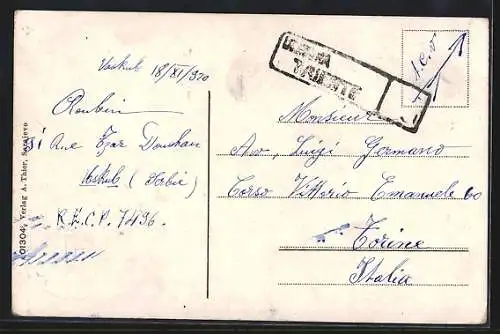 Uskub 18/XI/920
Rue Tzar Douchan
Uskub (Serbie)
R.L.C.P. 7496.
01304, Verlag A. Thier, Sarajevo
TRIESTE
Monsieur
Avv. Luigi Germano
Corso Vittorio Emanuele 60
Torino
Italia